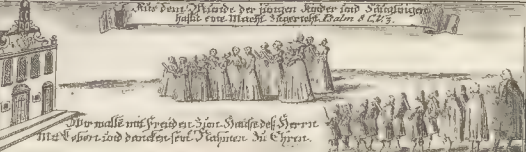 Aus dem Munde der jungen Kinder und Säuglingen
hastu eine Macht zugericht. Psalm 8. V. 3.
Wir walle mit Freuden zum Hause deß Herrn
Mit Loben und dancken seim Nahmen zu Ehren.